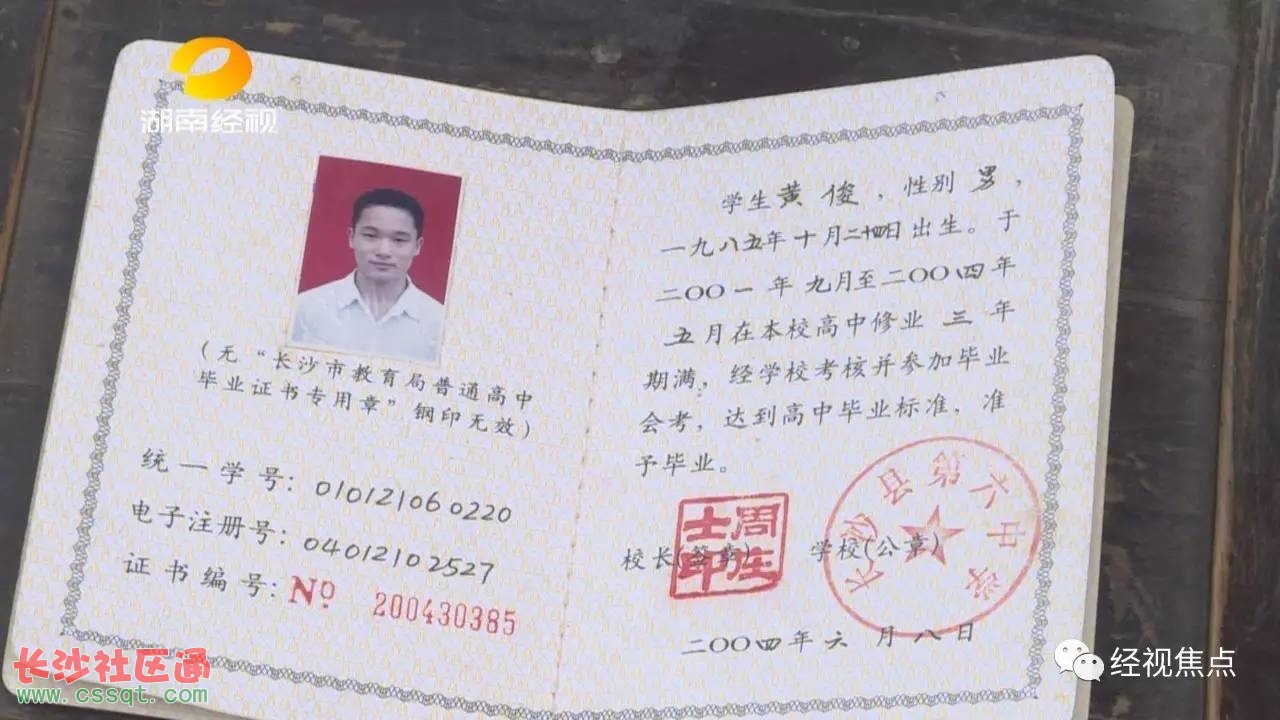 湖南经视
(无“长沙市教育局普通高中
毕业证书专用章”钢印无效)
统一学号: 01012106 0220
电子注册号: 04012102527
证书编号: No 200430385
学生黄俊,性别男,
一九八五年十月二十四日出生。于
二〇〇一年九月至二〇〇四年
五月在本校高中修业三年
期满,经学校考核并参加毕业
会考,达到高中毕业标准,准
予毕业。
校长(签章)
学校(公章)
长沙县第六中学
二〇〇四年六月八日
长沙社区通
www.cssqt.com
经视焦点